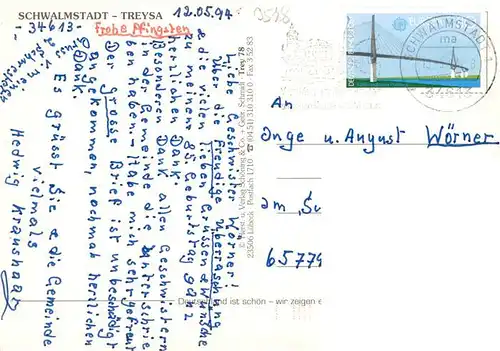 SCHWALMSTADT - TREYSA
12.05.94
- 34613 -
Frohe Pfingsten
Liebe Geschwister Wörner!
Über die freudige Überraschung
& die vielen lieben Grüssen & Wünsche
zu meinem 85 Geburtstag ganz
herzlichen Dank.
Besonderen Dank allen Geschwistern
in der Gemeinde die unterschrie
ben haben - Habe mich sehr gefreut
Der grosse Brief ist unbeschädigt
angekommen, nochmal herzlichen
Dank.
Es grüsst Sie & die Gemeinde
vielmals
Hedwig Kraushaar
© Kunst- u. Verlag Schöning & Co. + Gebr. Schmidt Trey 78
23506 Lübeck Postfach 1710 ☎ (0451) 310310 Fax 3 52 83
Deutschland ist schön – wir zeigen e
SCHWALMSTADT 1
ma
34613
An
Inge u. August Wörner
am
65779